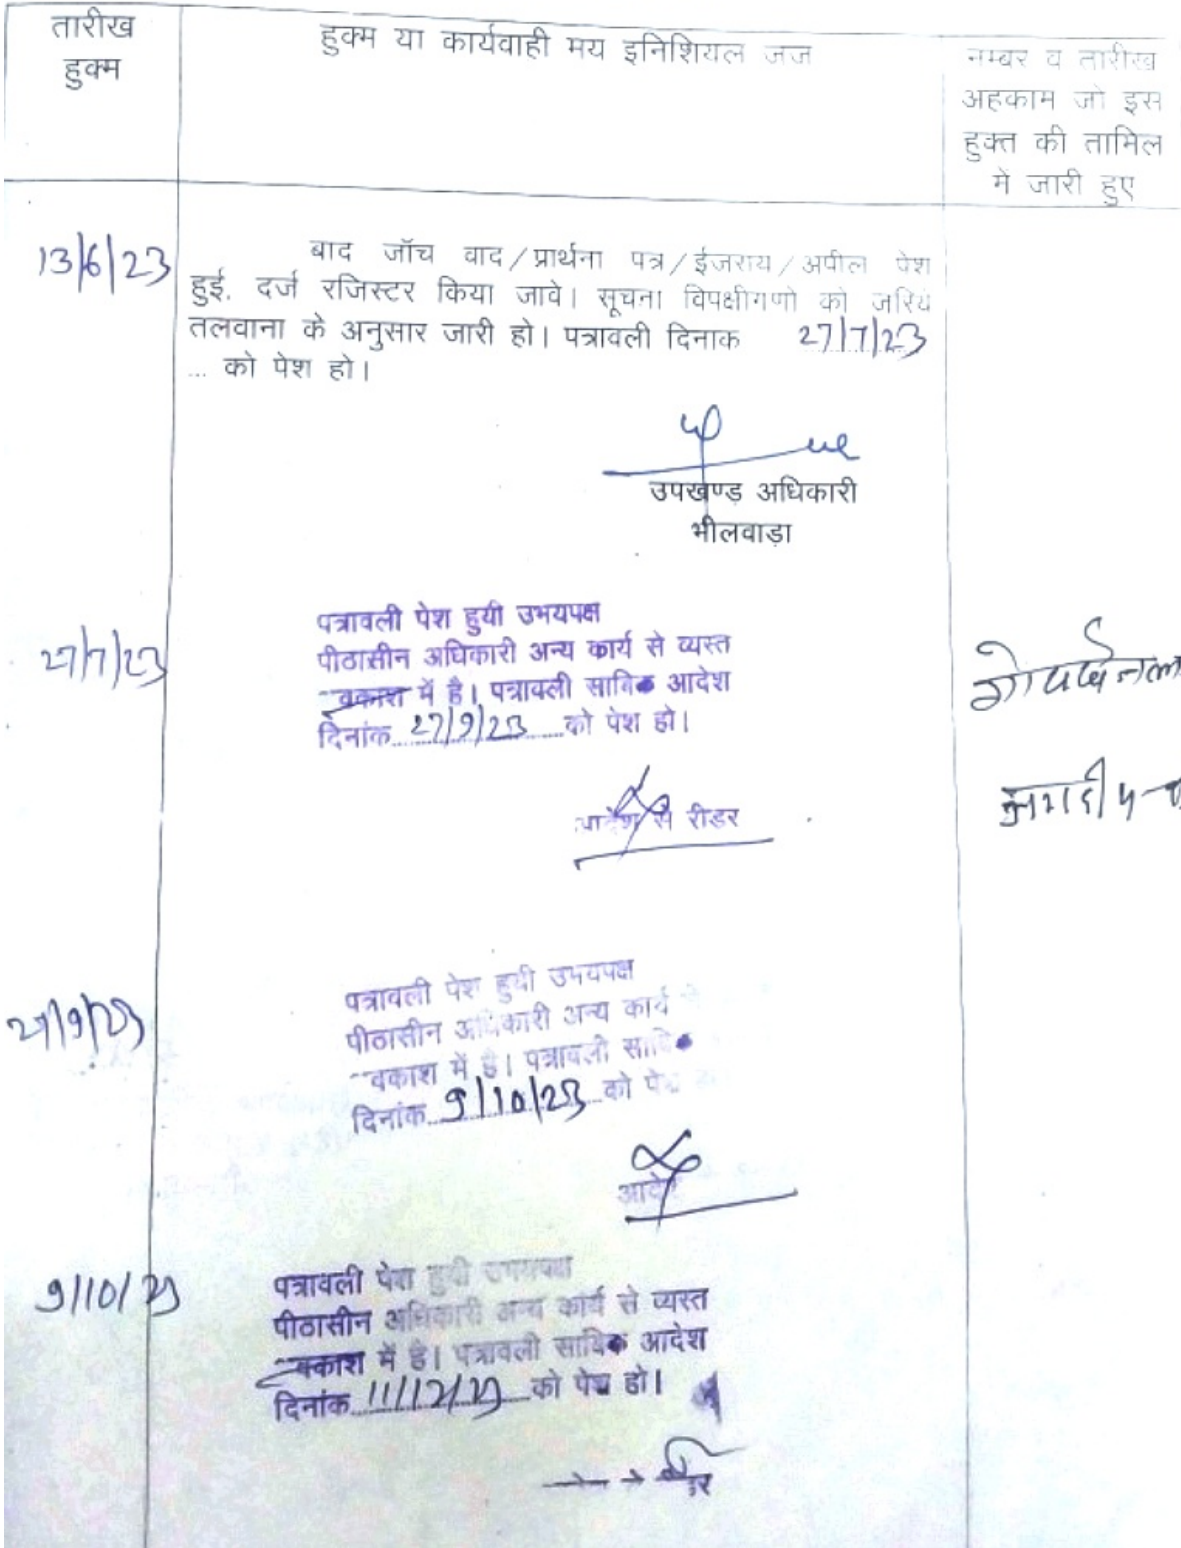 तारीख
हुक्म
हुक्म या कार्यवाही मय इनिशियल जज
नम्बर व तारीख
अहकाम जो इस
हुक्त की तामिल
में जारी हुए
13/6/23
बाद जॉच वाद/प्रार्थना पत्र/ईजराय/अपील पेश
हुई. दर्ज रजिस्टर किया जावे। सूचना विपक्षीगणो को जरिये
तलवाना के अनुसार जारी हो। पत्रावली दिनाक 27/7/23
... को पेश हो।
उपखण्ड अधिकारी
भीलवाड़ा
27/7/23
पत्रावली पेश हुयी उभयपक्ष
पीठासीन अधिकारी अन्य कार्य से व्यस्त
वकाश में है। पत्रावली साबिक आदेश
दिनांक 27/9/23 को पेश हो।
आदेश से रीडर
27/9/23
पत्रावली पेश हुयी उभयपक्ष
पीठासीन अधिकारी अन्य कार्य
वकाश में है। पत्रावली साबिक
दिनांक 9/10/23 को पेश
आदेश
9/10/23
पत्रावली पेश हुयी उभयपक्ष
पीठासीन अधिकारी अन्य कार्य से व्यस्त
वकाश में है। पत्रावली साबिक आदेश
दिनांक 11/12/23 को पेश हो।